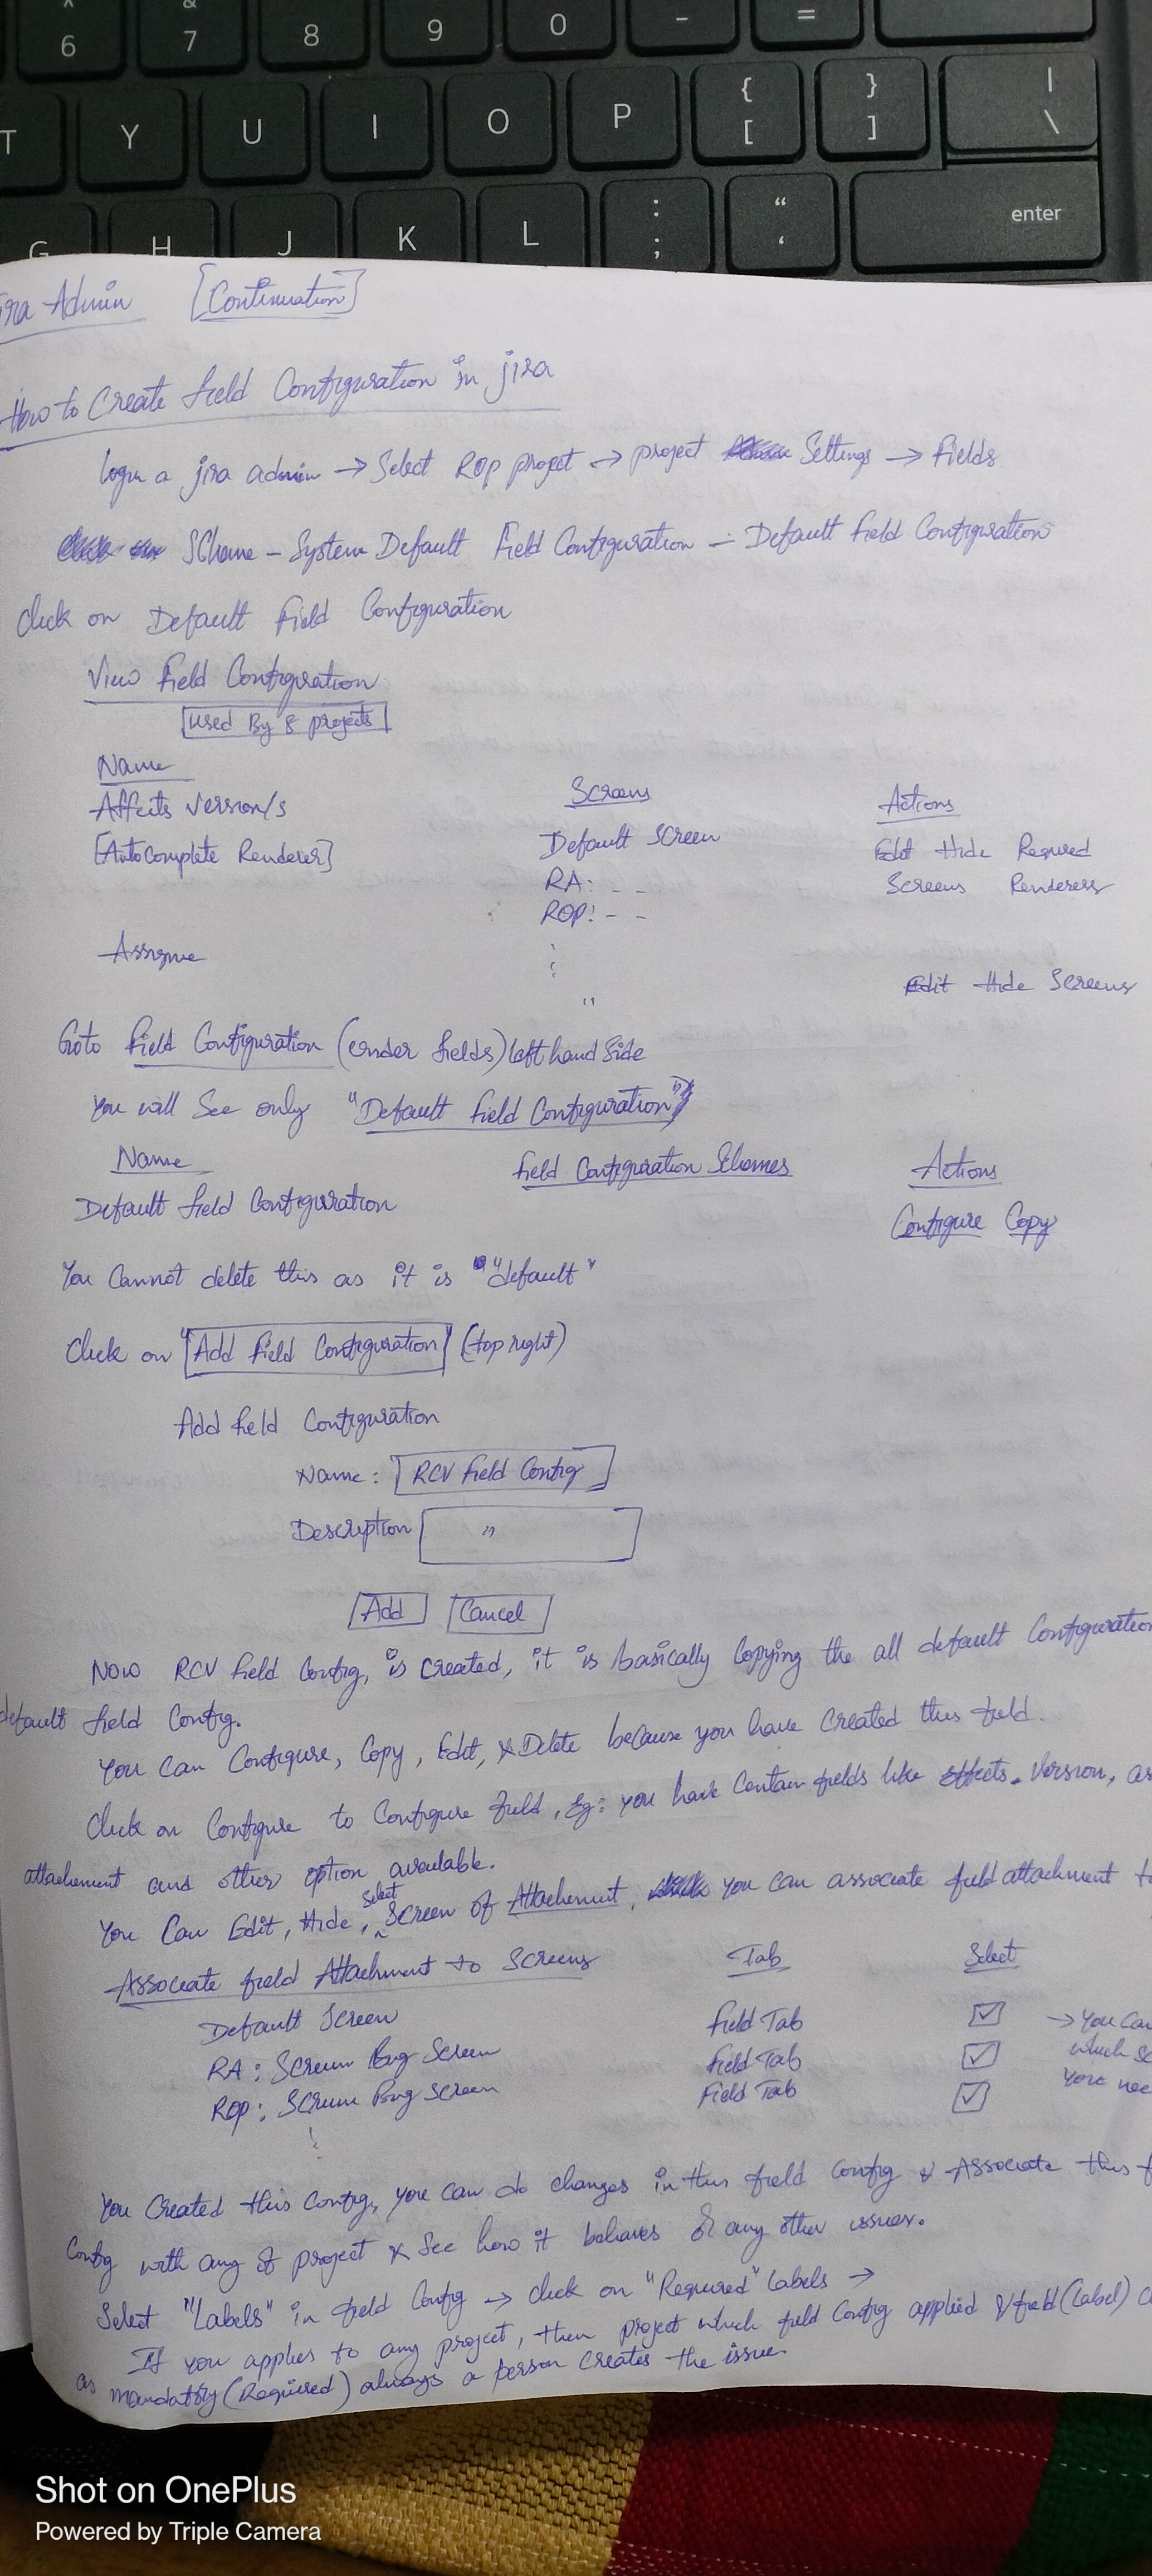 ^ &
6 7 8 9 0 - =
T Y U I O P { [ } ] | \
G H J K L : ; “ ‘ enter
ira Admin [Continuation]
How to Create field Configuration in jira
Login a jira admin → Select ROP project → project Settings → Fields
Scheme - System Default Field Configuration - Default Field Configuration
Click on Default Field Configuration
View Field Configuration
Used By 8 projects
Name Screens Actions
Affects Version/s Default Screen Edit Hide Required
[AutoComplete Renderer] RA: - - Screens Renderers
ROP: - -
Assignee " Edit Hide Screens
Goto Field Configuration (under fields) left hand Side
You will See only "Default field Configuration"
Name field Configuration Schemes Actions
Default field Configuration Configure Copy
You Cannot delete this as it is "default"
Click on "Add Field Configuration" (top right)
Add field Configuration
Name: RCV field Config
Description "
Add Cancel
Now RCV field Config, is created, it is basically Copying the all default Configuration
default field Config.
You Can Configure, Copy, Edit, & Delete because you have Created this field.
Click on Configure to Configure field, Eg: you have Certain fields like effects. Version, as
attachement and other option available.
You Can Edit, Hide, Select Screen of Attachement, you can associate field attachment to
Associate field Attachment to Screens Tab Select
Default Screen Field Tab ☑ → You Can
RA: Scrum Bug Screen Field Tab ☑ which sc
ROP: Scrum Bug Screen Field Tab ☑ You nee
You Created this Config, you can do changes in this field Config & Associate this f
Config with any of project & See how it behaves & any other issues.
Select "Labels" in field Config → click on "Required" Labels →
If you applies to any project, then project which field Config applied & field (label)
as mandatory (Required) always a person creates the issue.
Shot on OnePlus
Powered by Triple Camera